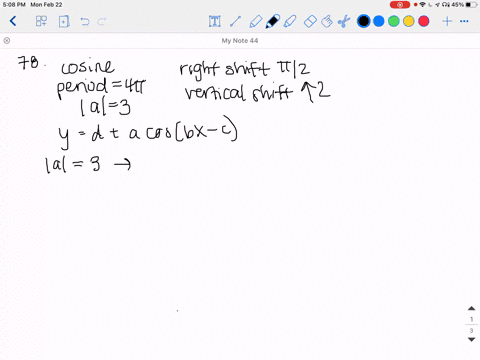 5:08 PM Mon Feb 22
45%
My Note 44
78. cosine right shift π/2
period = 4π vertical shift ↑2
|a| = 3
y = d + a cos(bx - c)
|a| = 3 →
1
3